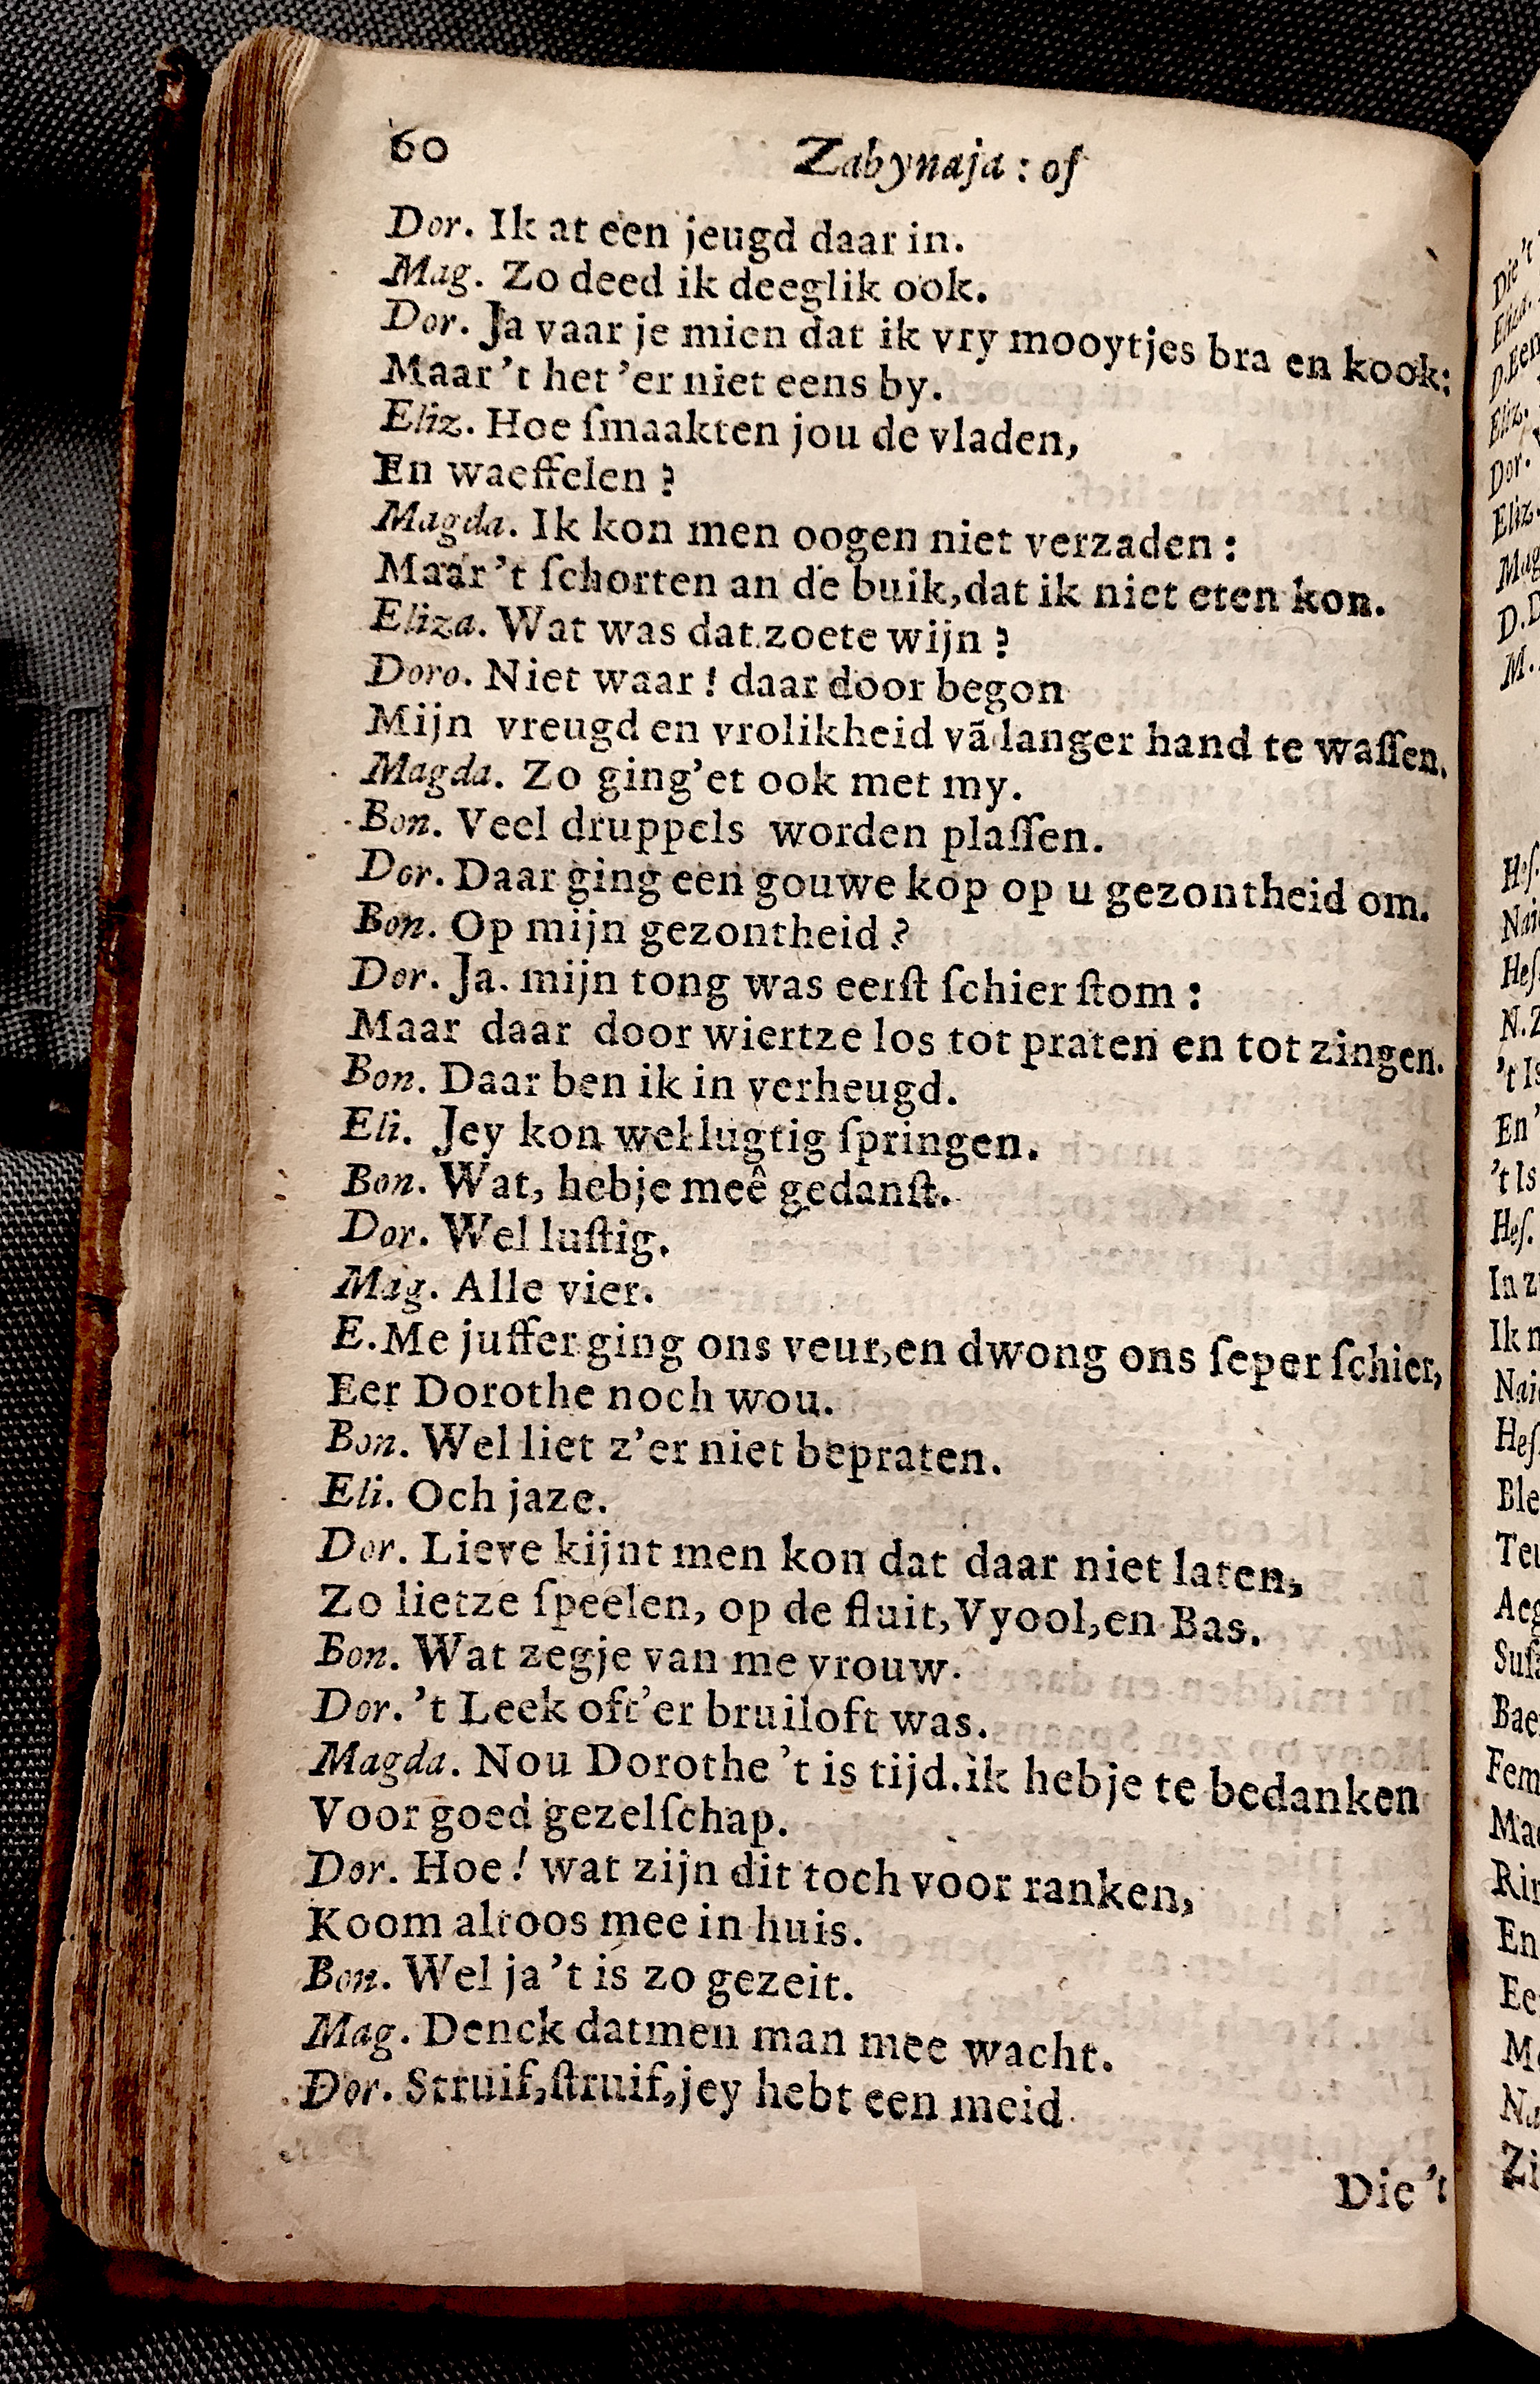 60 Zabynaja : of
Dor. Ik at een jeugd daar in.
Mag. Zo deed ik deeglik ook.
Dor. Ja vaar je mien dat ik vry mooytjes bra en kook:
Maar 't het 'er niet eens by.
Eliz. Hoe ſmaakten jou de vladen,
En waeffelen ?
Magda. Ik kon men oogen niet verzaden :
Maar 't ſchorten an de buik, dat ik niet eten kon.
Eliza. Wat was dat zoete wijn ?
Doro. Niet waar ! daar door begon
Mijn vreugd en vrolikheid vã langer hand te waſſen.
Magda. Zo ging'et ook met my.
Bon. Veel druppels worden plaſſen.
Dor. Daar ging een gouwe kop op u gezontheid om.
Bon. Op mijn gezontheid ?
Dor. Ja. mijn tong was eerſt ſchier ſtom :
Maar daar door wiertze los tot praten en tot zingen.
Bon. Daar ben ik in verheugd.
Eli. Jey kon wel lugtig ſpringen.
Bon. Wat, hebje meê gedanſt.
Dor. Wel luſtig.
Mag. Alle vier.
E. Me juffer ging ons veur, en dwong ons ſeper ſchier,
Eer Dorothe noch wou.
Bon. Wel liet z'er niet bepraten.
Eli. Och jaze.
Dor. Lieve kijnt men kon dat daar niet laten,
Zo lietze ſpeelen, op de fluit, Vyool, en Bas.
Bon. Wat zegje van me vrouw.
Dor. 't Leek oft'er bruiloft was.
Magda. Nou Dorothe 't is tijd. ik hebje te bedanken
Voor goed gezelſchap.
Dor. Hoe ! wat zijn dit toch voor ranken,
Koom altoos mee in huis.
Bon. Wel ja 't is zo gezeit.
Mag. Denck datmen man mee wacht.
Dor. Struif, ſtruif, jey hebt een meid
Die 't
Die 't
Eliza.
D. Een
Eliz.
Dor.
Eliz.
Mag
D. D
M.
Heſ.
Nai
Heſ.
N. Z
't Is
En '
't Is
Heſ.
In z
Ik n
Nai
Heſ
Ble
Teu
Aeg
Suſ
Bae
Fem
Ma
Rin
En
Ee
M
Na
Zi